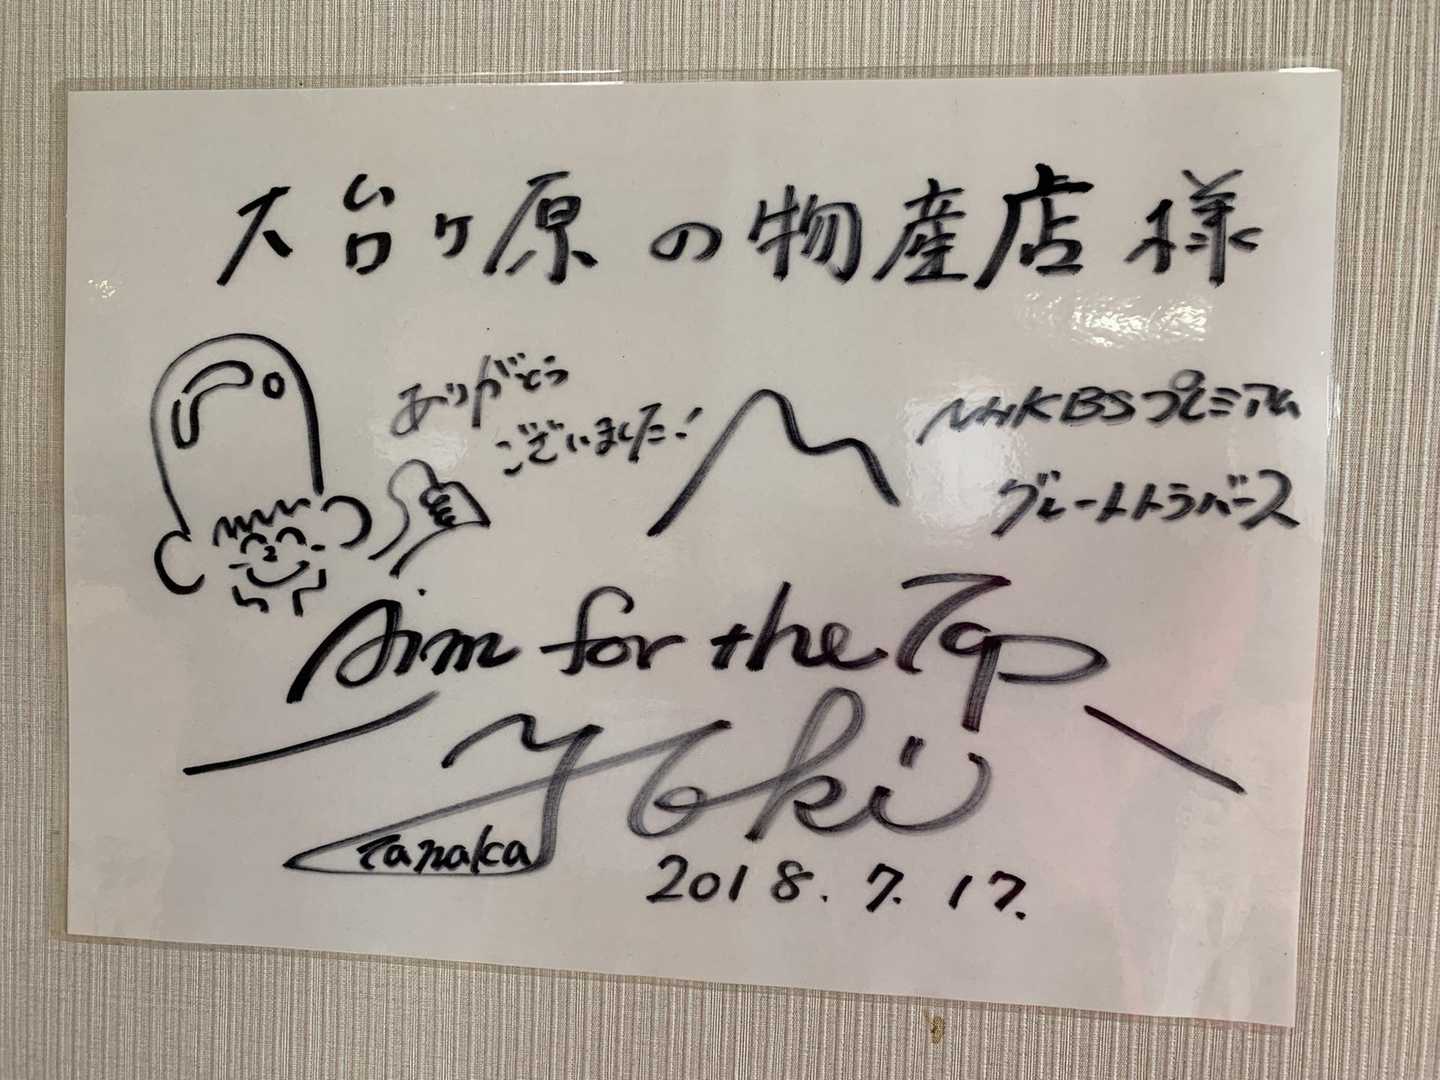 大台ヶ原の物産店様
ありがとう
ございました!
NHK BSプレミアム
グレートトラバース
Aim for the Top
Yoki
Tanaka
2018.7.17.